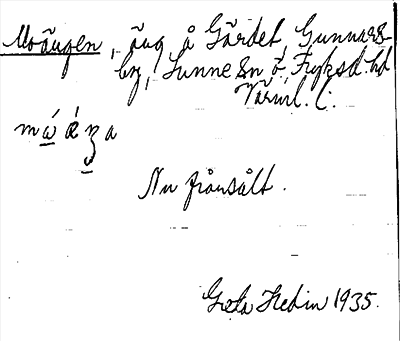 Moängen, äng å Gärdet, Gunnars-
by, Sunne sn o, Fryksd. hd
Värml. l.
Nu frånsålt.
Greta Hedin 1935.